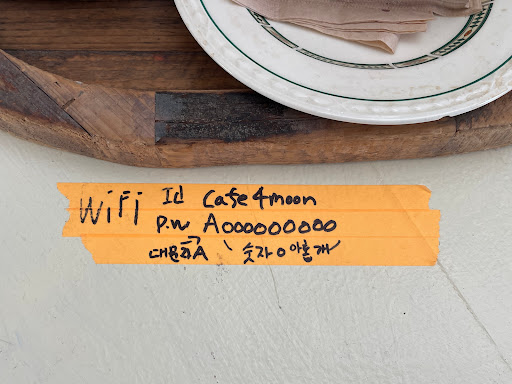 WiFi Id Cafe 4moon
P.W A000000000
대문자→A, 숫자 0 아홉개